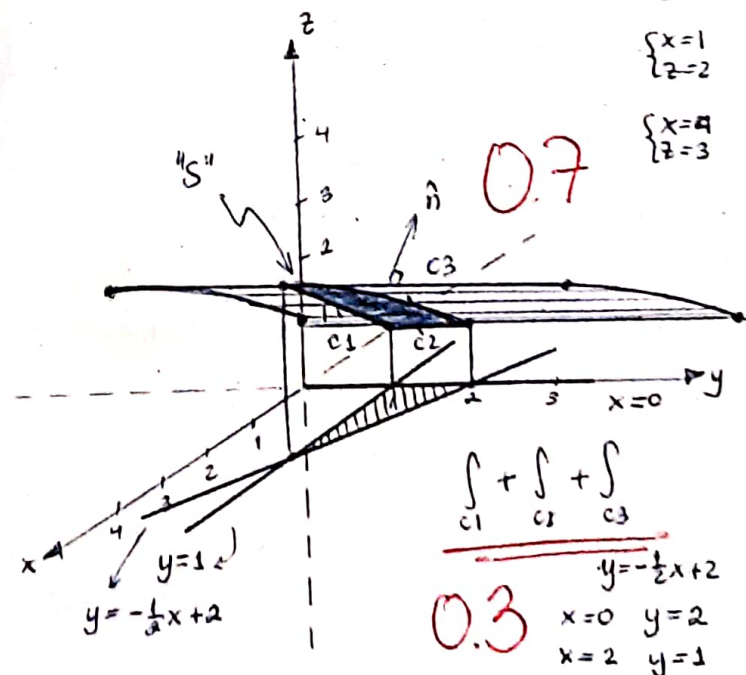 z
{x=1
z=2
{x=4
z=3
4
0.7
"S"
3
n̂
2
C3
C1
C2
1
2
3
y
x=0
1
2
3
4
x
y=1
y=-1/2x+2
∫ + ∫ + ∫
C1 C2 C3
0.3
y=-1/2x+2
x=0 y=2
x=2 y=1